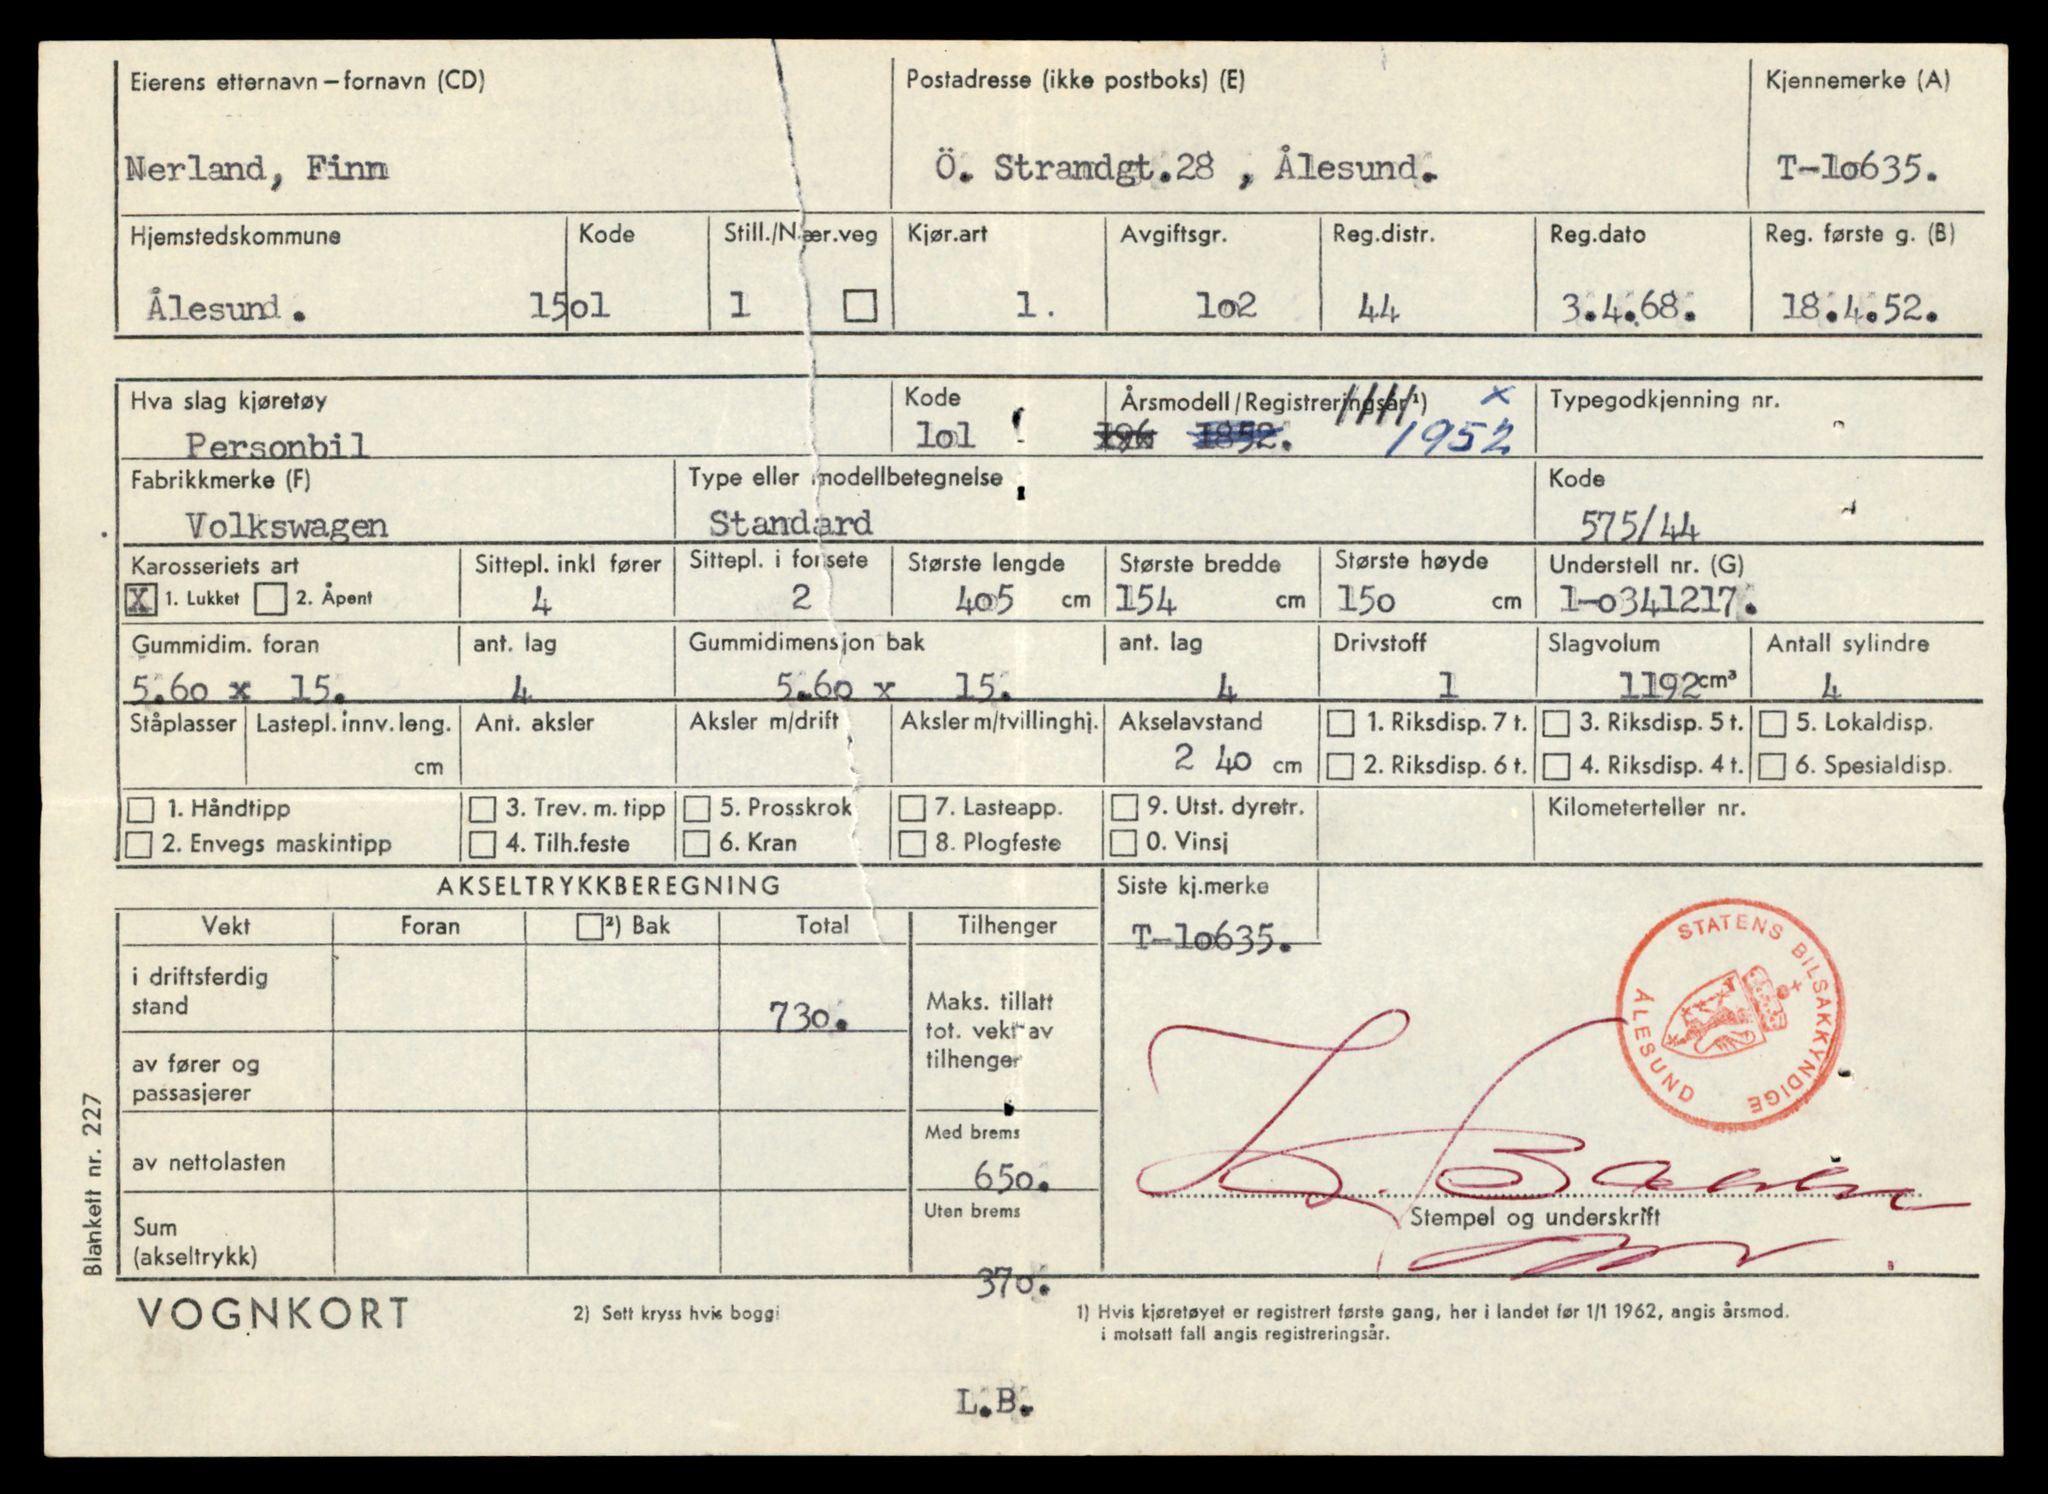 Eierens etternavn – fornavn (CD) Postadresse (ikke postboks) (E) Kjennemerke (A)
Nerland, Finn Ö. Strandgt.28 , Ålesund. T-lo635.
Hjemstedskommune Kode Still./Nær.veg Kjør.art Avgiftsgr. Reg.distr. Reg.dato Reg. første g. (B)
Ålesund. 15ol 1 1. lo2 44 3.4.68. 18.4.52.
Hva slag kjøretøy Kode Årsmodell/Registreringsår¹) x Typegodkjenning nr.
Personbil lol 196 1852. 1952
Fabrikkmerke (F) Type eller modellbetegnelse Kode
Volkswagen Standard 575/44
Karosseriets art Sittepl. inkl fører Sittepl. i forsete Største lengde Største bredde Største høyde Understell nr. (G)
X 1. Lukket 2. Åpent 4 2 4o5 cm 154 cm 15o cm 1-o341217.
Gummidim. foran ant. lag Gummidimensjon bak ant. lag Drivstoff Slagvolum Antall sylindre
5.6o x 15. 4 5.6o x 15. 4 1 1192cm³ 4
Ståplasser Lastepl. innv. leng. Ant. aksler Aksler m/drift Aksler m/tvillinghj. Akselavstand 1. Riksdisp. 7 t. 3. Riksdisp. 5 t. 5. Lokaldisp.
cm 2 4o cm 2. Riksdisp. 6 t. 4. Riksdisp. 4 t. 6. Spesialdisp.
1. Håndtipp 3. Trev. m. tipp 5. Prosskrok 7. Lasteapp. 9. Utst. dyretr. Kilometerteller nr.
2. Envegs maskintipp 4. Tilh.feste 6. Kran 8. Plogfeste 0. Vinsj
AKSELTRYKKBEREGNING Siste kj.merke
Vekt Foran ²) Bak Total Tilhenger T-lo635.
i driftsferdig
stand 73o.
Maks. tillatt
tot. vekt av
tilhenger
av fører og
passasjerer
STATENS BILSAKKYNDIGE
ÅLESUND
Med brems
av nettolasten 65o.
Uten brems
Stempel og underskrift
Sum
(akseltrykk) 37o.
Blankett nr. 227
VOGNKORT 2) Sett kryss hvis boggi 1) Hvis kjøretøyet er registrert første gang, her i landet før 1/1 1962, angis årsmod.
i motsatt fall angis registreringsår.
L.B.